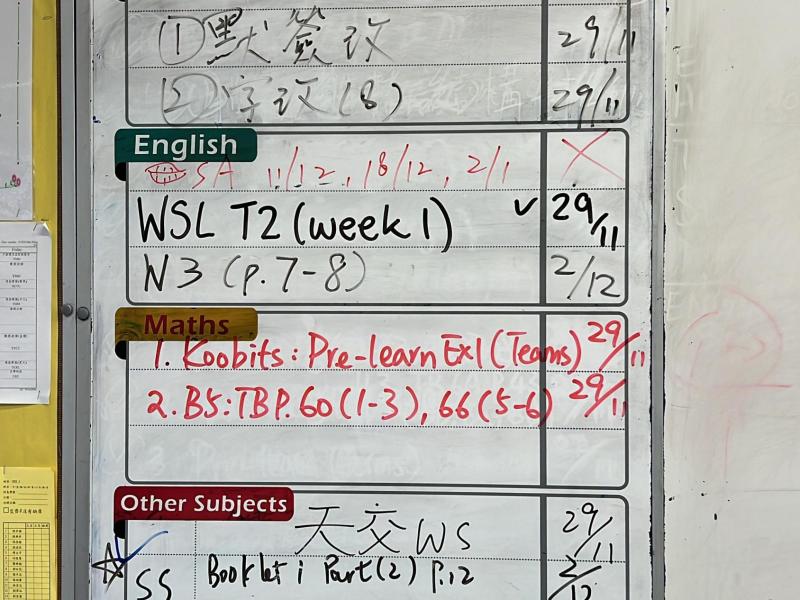 ① 默簽改 29/11
② 字改(8) 29/11
English
SA 11/12, 18/12, 2/1
WSL T2 (week 1) ✓ 29/11
N3 (p.7-8) 2/12
Maths
1. Koobits: Pre-learn Ex1 (Teams) 29/11
2. B5: TB P.60 (1-3), 66 (5-6) 29/11
Other Subjects
天交 WS 29/11
☆ SS Booklet 1 Part (2) p.12 2/12